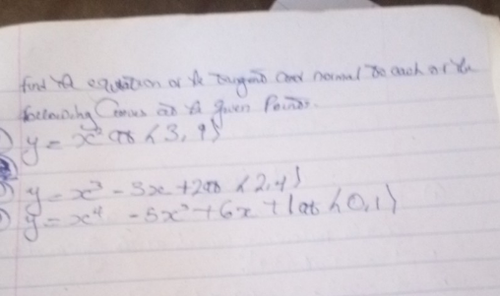 find the equation of the tangent and normal to each of the
following Curves at the given Points.
y = x² at (3, 9)
y = x³ - 3x + 2 at (2, 4)
y = x⁴ - 5x² + 6x + 1 at (0, 1)